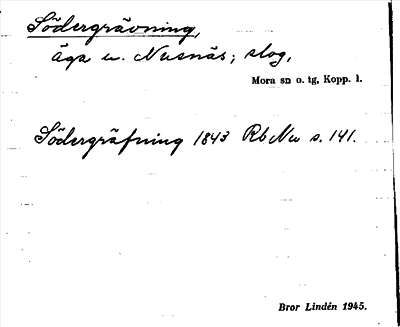 Södergrävning,
äga u. Nusnäs; slog,
Mora sn o. tg, Kopp. l.
Södergräfning 1843 Rb Nu s. 141.
Bror Lindén 1945.